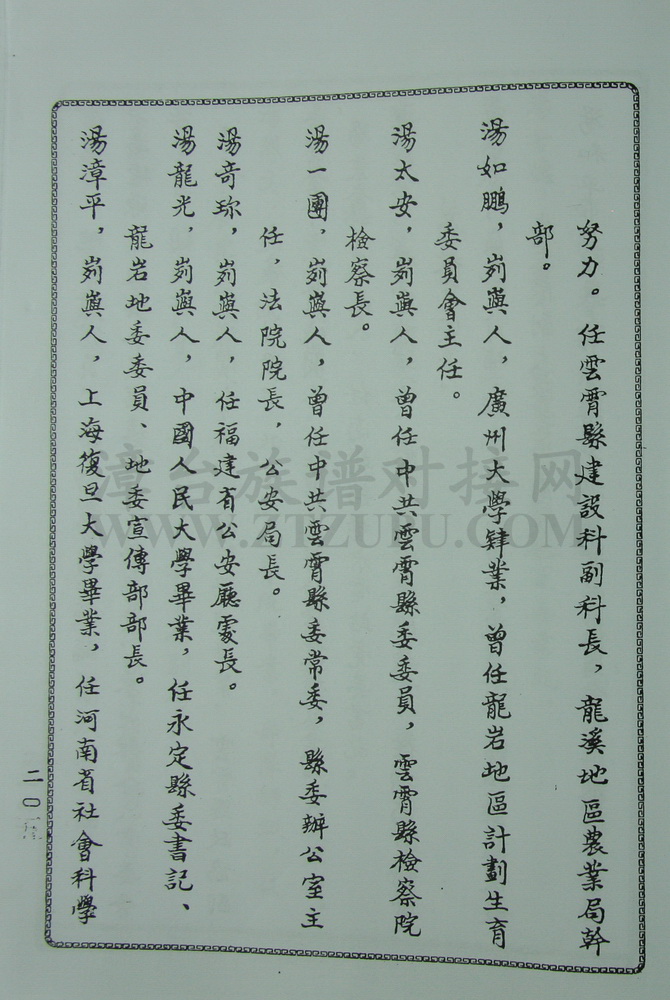 努力。任雲霄縣建設科副科長，龍溪地區農業局幹
部。
湯如鵬，峛嶼人，廣州大學肄業，曾任龍岩地區計劃生育
委員會主任。
湯太安，峛嶼人，曾任中共雲霄縣委委員，雲霄縣檢察院
檢察長。
湯一團，峛嶼人，曾任中共雲霄縣委常委，縣委辦公室主
任，法院院長，公安局長。
湯奇珎，峛嶼人，任福建省公安廳處長。
湯龍光，峛嶼人，中國人民大學畢業，任永定縣委書記、
龍岩地委委員、地委宣傳部部長。
湯漳平，峛嶼人，上海復旦大學畢業，任河南省社會科學
二〇一
漳台族谱对接网
WWW.ZTZUPU.COM